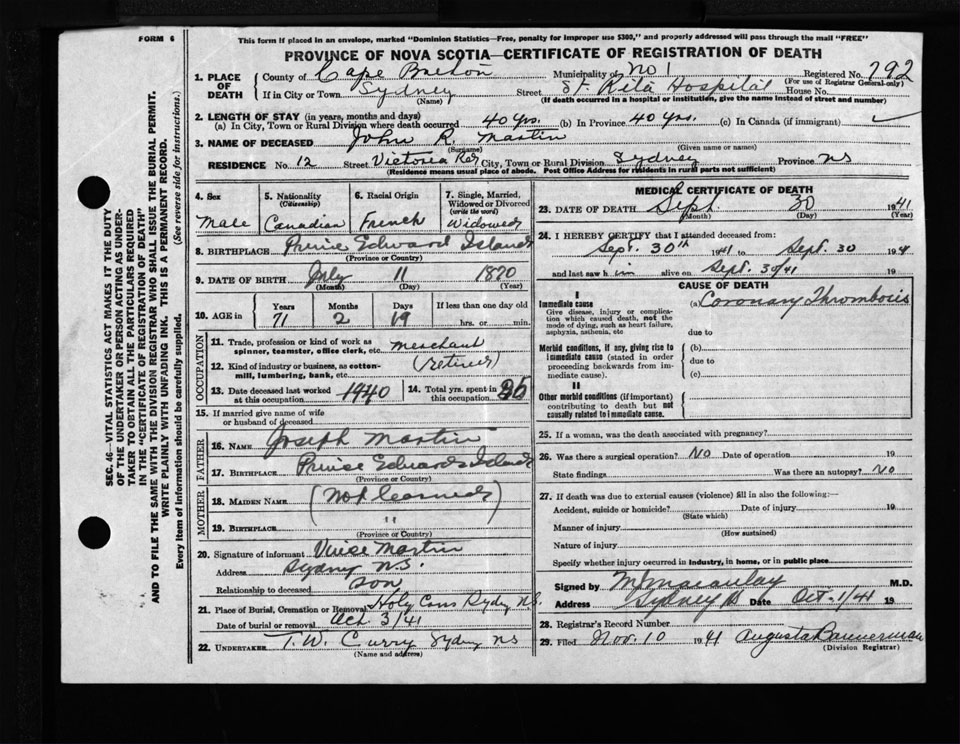 FORM 6
This form if placed in an envelope, marked "Dominion Statistics—Free, penalty for improper use $300," and properly addressed will pass through the mail "FREE"
PROVINCE OF NOVA SCOTIA—CERTIFICATE OF REGISTRATION OF DEATH
1. PLACE OF DEATH County of Cape Breton Municipality of No 1 Registered No. 792
(For use of Registrar General-only)
If in City or Town Sydney Street St. Rita Hospital House No.
(Name) (If death occurred in a hospital or institution, give the name instead of street and number)
2. LENGTH OF STAY (in years, months and days)
(a) In City, Town or Rural Division where death occurred 40 yrs. (b) In Province 40 yrs. (c) In Canada (if immigrant)
3. NAME OF DECEASED John R. Martin
(Surname) (Given name or names)
RESIDENCE No. 12 Street Victoria Rd City, Town or Rural Division Sydney Province NS
(Residence means usual place of abode. Post Office Address for residents in rural parts not sufficient)
4. Sex 5. Nationality (Citizenship) 6. Racial Origin 7. Single, Married, Widowed or Divorced (write the word)
Male Canadian French Widowed
8. BIRTHPLACE Prince Edward Island
(Province or Country)
9. DATE OF BIRTH July 11 1870
(Month) (Day) (Year)
10. AGE in Years Months Days If less than one day old
71 2 19 hrs. or min.
OCCUPATION
11. Trade, profession or kind of work as spinner, teamster, office clerk, etc. merchant
12. Kind of industry or business, as cotton-mill, lumbering, bank, etc. (retired)
13. Date deceased last worked at this occupation 1940 14. Total yrs. spent in this occupation 36
15. If married give name of wife or husband of deceased
FATHER
16. NAME Joseph Martin
17. BIRTHPLACE Prince Edward Island
(Province or Country)
MOTHER
18. MAIDEN NAME (Not learned)
19. BIRTHPLACE "
(Province or Country)
20. Signature of informant Martin
Address Sydney N.S.
Relationship to deceased Son
21. Place of Burial, Cremation or Removal Holy Cross Sydney N.S.
Date of burial or removal Oct 3/41
22. UNDERTAKER T.W. Curry Sydney NS
(Name and address)
MEDICAL CERTIFICATE OF DEATH
23. DATE OF DEATH Sept. 30 1941
(Month) (Day) (Year)
24. I HEREBY CERTIFY that I attended deceased from:
Sept. 30th 1941 to Sept. 30 1941
and last saw him alive on Sept. 30/41 19
CAUSE OF DEATH
I
Immediate cause (a) Coronary Thrombosis
Give disease, injury or complication which caused death, not the mode of dying, such as heart failure, asphyxia, asthenia, etc
due to
Morbid conditions, if any, giving rise to immediate cause (stated in order proceeding backwards from immediate cause).
(b)
due to
(c)
II
Other morbid conditions (if important) contributing to death but not causally related to immediate cause.
25. If a woman, was the death associated with pregnancy?
26. Was there a surgical operation? No Date of operation 19
State findings Was there an autopsy? No
27. If death was due to external causes (violence) fill in also the following:—
Accident, suicide or homicide? Date of injury 19
(State which)
Manner of injury
(How sustained)
Nature of injury
Specify whether injury occurred in industry, in home, or in public place
Signed by M. Macaulay M.D.
Address Sydney Date Oct. 1/41 19
28. Registrar's Record Number
29. Filed Nov. 10 1941 Augusta Bannerman
(Division Registrar)
SEC. 46—VITAL STATISTICS ACT MAKES IT THE DUTY
OF THE UNDERTAKER OR PERSON ACTING AS UNDER-
TAKER TO OBTAIN ALL THE PARTICULARS REQUIRED
IN THE "CERTIFICATE OF REGISTRATION OF DEATH"
AND TO FILE THE SAME WITH THE DIVISION REGISTRAR WHO SHALL ISSUE THE BURIAL PERMIT.
WRITE PLAINLY WITH UNFADING INK. THIS IS A PERMANENT RECORD.
Every item of information should be carefully supplied. (See reverse side for instructions.)